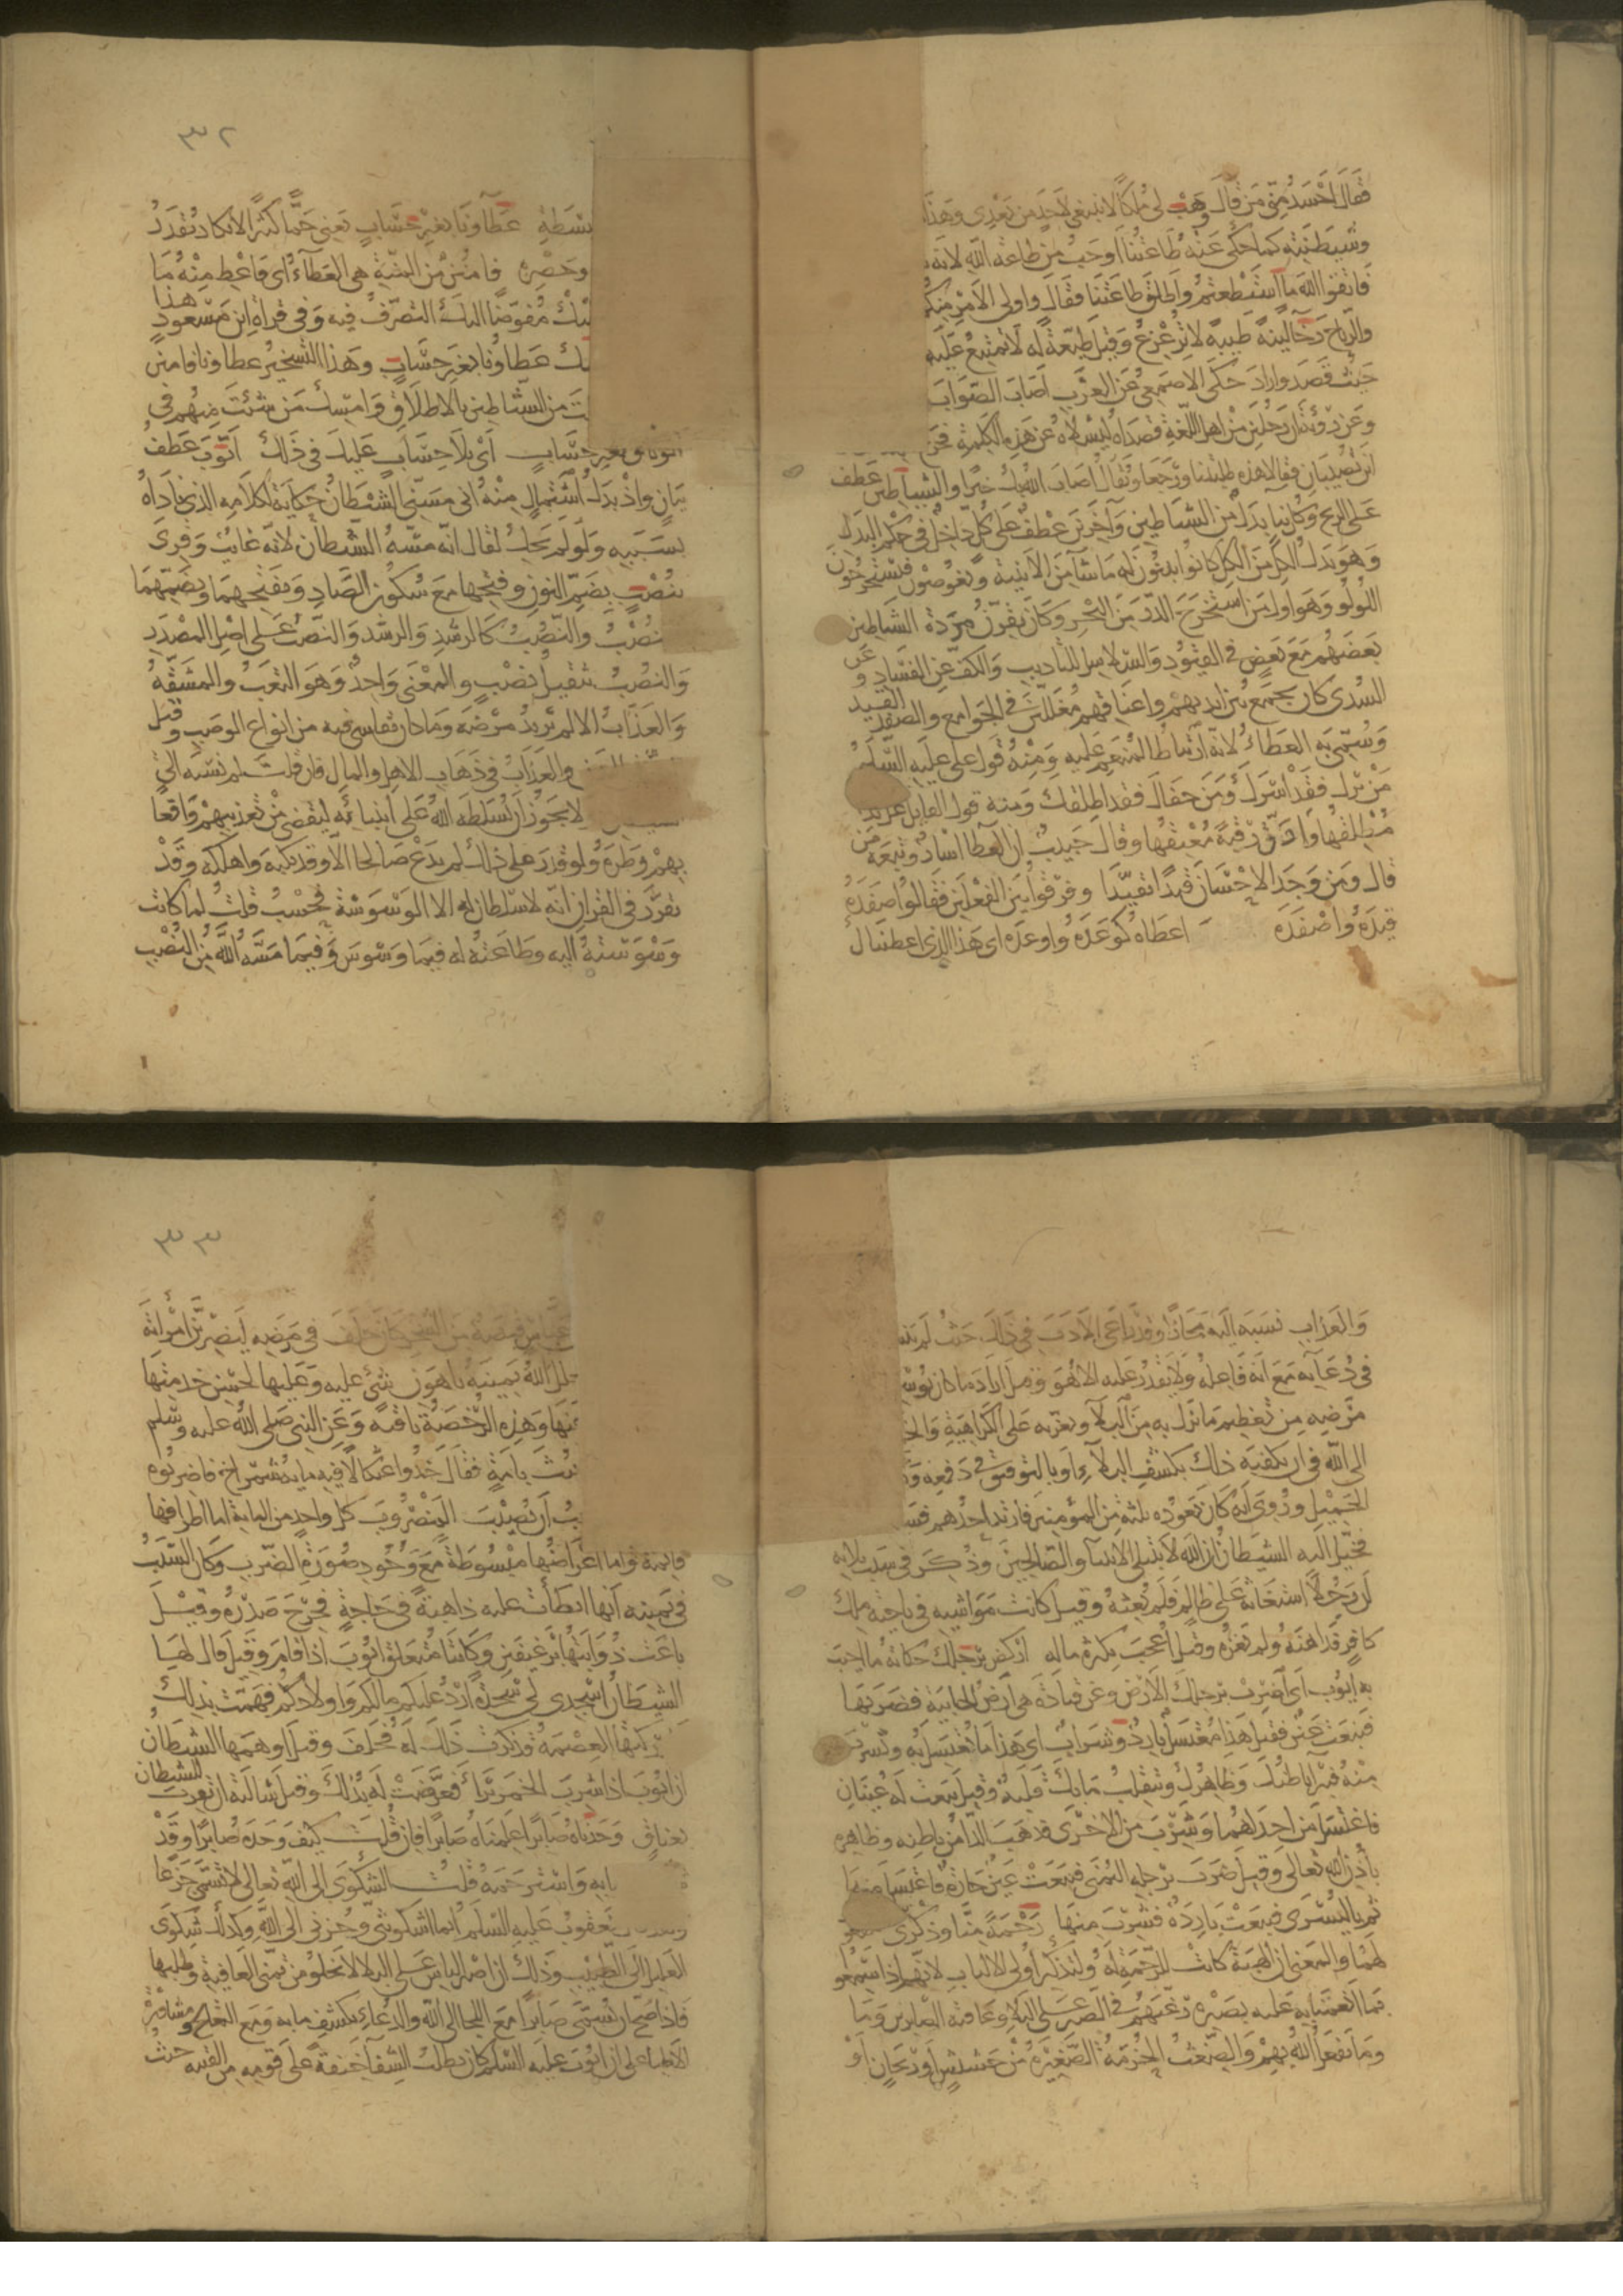 فقال احسد مني من قال وهب لي ملكا لا ينبغي لاحد من بعدي وهذا
وشيطنته كما حكي عنه طاعتنا اوجب من طاعة الله لانه
فاتقوا الله ما استطعتم واطلق طاعتنا فقال واولي الامر منكم
والرياح رخا لينة طيبة لا تزعزع وقيل طيعة له لا تمتنع عليه
حيث قصد واراد حكى الاصمعي عن العرب اصاب الصواب
وعن رؤبة ان رجلين من اهل اللغة قصداه ليسئلاه عن هذه الكلمة فخرج
اين تصيبان فقالا هذه طلبتنا ورجعا ويقال اصاب الله بك خيرا والشياطين عطف
على الريح وكل بنا بدل من الشياطين وآخرين عطف على كل داخل في حكم البدل
وهو بدل الكل من الكل كانوا يبنون له ما شآ من الابنية ويغوصون فيستخرجون
اللولو وهو اول من استخرج الدر من البحر وكان يقرن مردة الشياطين
بعضهم مع بعض في القيود والسلاسل للتاديب والكف عن الفساد وعن
السدي كان يجمع بين ايديهم واعناقهم مغللين في الجوامع والصفد القيد
وسمي به العطاء لانه ارتباط للمنعم عليه ومنه قول علي عليه السلم
من برك فقد اسرك ومن جفاك فقد اطلقك ومنه قول القايل غل يدا
مطلقها وارق رقبة معتقها وقال حبيب ان العطا اسار وتبعه من
قال ومن وجد الاحسان قيدا تقيدا وفرقوا بين الفعلين فقالوا صفده
قيده واصفده اعطاه كوعده واوعده اي هذا الذي اعطيناك
٣٢
بسطة عطاونا بغير حساب يعني جما كثيرا لا يكاد يقدر
وحصره فامنن من المنة هي العطآء اي فاعط منه ما
مفوضا اليك التصرف فيه وفي قراة ابن مسعود هذا
عطاونا بغير حساب وهذا التسخير عطاونا فامنن
من الشياطين بالاطلاق وامسك من شئت منهم في
بغير حساب اي بلا حساب عليك في ذلك ايوب عطف
بيان واذ بدل اشتمال منه اني مسني الشيطان حكاية لكلامه الذي ناداه
بسببه ولو لم يحك لقال انه مسه الشيطان لانه غائب وقرى
بنصب بضم النون وفتحها مع سكون الصاد وبفتحهما وبضمهما
والنصب كالرشد والرشد والنصب على اصل المصدر
والنصب تثقيل نصب والمعنى واحد وهو التعب والمشقة
والعذاب الالم يريد مرضه وما كان يقاسي فيه من انواع الوصب وقيل
والعذاب في ذهاب الاهل والمال فان قلت لم نسبه الى
لا يجوز ان يسلطه الله على انبيائه ليقضي من تعذيبهم واتعا
بهم وطره ولو قدر على ذلك لم يدع صالحا الا وقد نكبه واهلكه وقد
تفرد في القران انه لا سلطان له الا الوسوسة فحسب قلت لما كانت
وسوسته اليه وطاعته له فيما وسوس وفيما مسه الله من النصب
والعذاب نسبه اليه مجازا وقد راعى الادب في ذلك حيث لم ينسبه
في دعآيه مع انه فاعله ولا يقدر عليه الا هو وقيل اراد ما كان يوسوس
مرضه من تعظيم ما نزل به من البلآ ويغريه على الكراهية والجزع
الى الله في ان يكفيه ذلك بكشف البلآء او بالتوفيق في دفعه
الجميل وروى انه كان يعوده ثلثة من المؤمنين فارتد احدهم
فخيل اليه الشيطان ان الله لا يبتلي الانبيآ والصالحين وذكر في سبب بلايه
ان رجلا استغاثه على ظالم فلم يغثه وقيل كانت مواشيه في ناحية ملك
كافر فداهنه ولم يغزه وقيل اعجب بكثرة ماله اركض برجلك حكاية ما اجيب
به ايوب اي اضرب برجلك الارض وعن قتادة هي ارض الجابية فضربها
فنبعت عين فقيل هذا مغتسل بارد وشراب اي هذا ما تغتسل به وتشرب
منه فيبرا باطنك وظاهرك وتنقلب ما بك قلبة وقيل نبعت له عينان
فاغتسل من احداهما وشرب من الاخرى فذهب الدآ من باطنه وظاهره
باذن الله تعالى وقيل ضرب برجله اليمنى فنبعت عين حارة فاغتسل منها
ثم باليسرى فنبعت باردة فشرب منها رحمة منا وذكرى
لهما والمعنى ان الهبة كانت للرحمة له ولتذكير اولي الالباب لانهم اذا سمعوا
بما انعمنا به عليه بصبره رغبهم في الصبر على البلآ وعاقبة الصابرين وما
وما يفعل الله بهم والضغث الحزمة الصغيرة من حشيش او ريحان او
٣٣
عباس قبضة من الشجر كان حلف في مرضه ليضربن امراته
الله يمينه باهون شئ عليه وعليها لحسن خدمتها
وهذه الرخصة باقية وعن النبي صلى الله عليه وسلم
بامة فقال خذوا عثكالا فيه ماية شمراخ فاضربوه
ان يصيب المضروب كل واحد من الماية اما اطرافها
قائمة واما اعراضها مبسوطة مع وجود صورة الضرب وكان السبب
في يمينه انها ابطأت عليه ذاهبة في حاجة فحرج صدره وقيل
باعت ذوابتيها برغيفين وكانتا متعلق ايوب اذا قام وقيل قال لها
الشيطان اسجدي لي سجدة ارد عليكم مالكم واولادكم فهمت بذلك
العصمة فذكرت ذلك له فحلف وقيل اوهمها الشيطان
ان ايوب اذا شرب الخمر برأ فعرضت له بذلك وقيل سالته ان يقرب للشيطان
بعناق وجدناه صابرا علمناه صابرا فان قلت كيف وجده صابرا وقد
ما به واسترحمه قلت الشكوى الى الله تعالى لا تسمى جزعا
يعقوب عليه السلم انما اشكو بثي وحزني الى الله وكذلك شكوى
العليل الى الطبيب وذلك ان اصبر الناس على البلا لا يخلو من تمني العافية وطلبها
فاذا صح ان يسمى صابرا مع اللجا الى الله والدعاء بكشف ما به ومع التعالج ومشاورة
الاطبا على ان ايوب عليه السلم كان يطلب الشفآ خيفة على قومه من الفتنة حيث